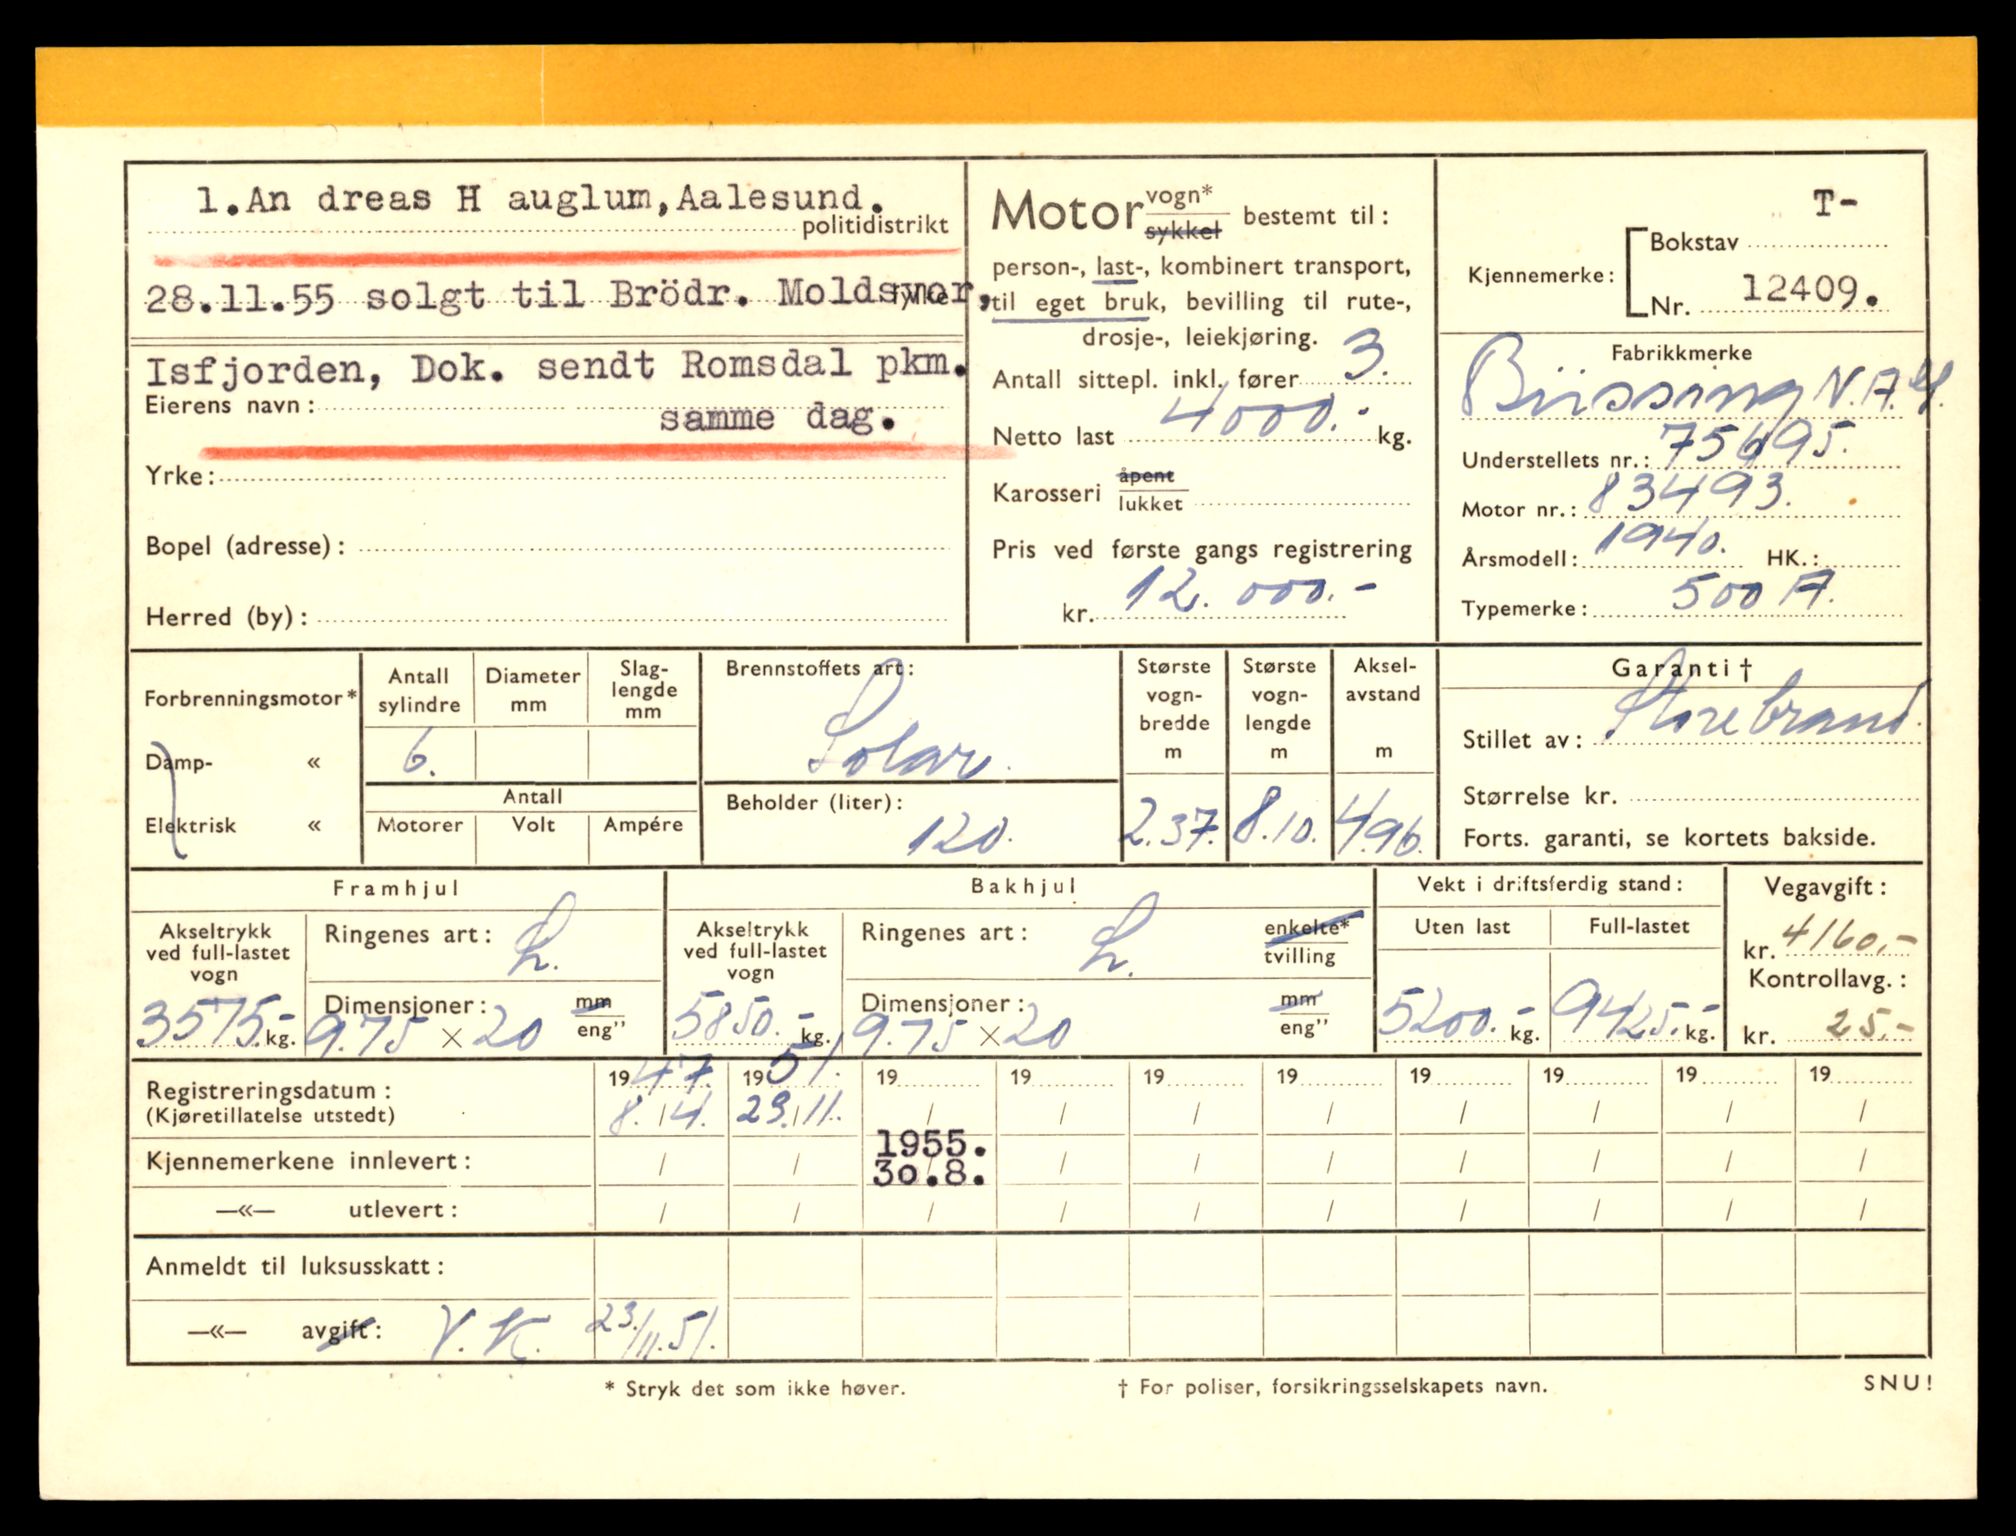 1.An dreas H auglum,Aalesund.
politidistrikt
28.11.55 solgt til Brödr. Moldsvor,
fylke
Isfjorden, Dok. sendt Romsdal pkm.
Eierens navn:
samme dag.
Yrke:
Bopel (adresse):
Herred (by):
Motor vogn*
sykkel bestemt til:
person-, last-, kombinert transport,
til eget bruk, bevilling til rute-,
drosje-, leiekjøring.
Antall sittepl. inkl. fører 3.
Netto last 4000.- kg.
Karosseri åpent
lukket
Pris ved første gangs registrering
kr. 12.000.-
Kjennemerke: Bokstav T-
Nr. 12409.
Fabrikkmerke
Büssing N.A.G.
Understellets nr.: 75695.
Motor nr.: 83493.
Årsmodell: 1940. HK.:
Typemerke: 500 A.
Forbrenningsmotor*
Damp- «
Elektrisk «
Antall sylindre
6.
Diameter mm
Slag-
lengde
mm
Antall
Motorer Volt Ampére
Brennstoffets art:
Solar.
Beholder (liter):
120.
Største
vogn-
bredde
m
2.37.
Største
vogn-
lengde
m
8.10.
Aksel-
avstand
m
4.96.
Garanti †
Stillet av: Storebrand.
Størrelse kr.
Forts. garanti, se kortets bakside.
Framhjul
Akseltrykk
ved full-lastet
vogn
3575.- kg.
Ringenes art: L.
Dimensjoner: mm
9.75 × 20 eng”
Bakhjul
Akseltrykk
ved full-lastet
vogn
5850.- kg.
Ringenes art: L. enkelte*
tvilling
Dimensjoner: mm
9.75 × 20 eng”
Vekt i driftsferdig stand:
Uten last Full-lastet
5200.- kg. 9425.- kg.
Vegavgift:
kr. 4160.-
Kontrollavg.:
kr. 25.-
Registreringsdatum: 1947. 1951. 19 19 19 19 19 19 19 19
(Kjøretillatelse utstedt) 8./4. 23./11. / / / / / / / /
1955.
Kjennemerkene innlevert: / / 30.8. / / / / / / /
—«— utlevert: / / / / / / / / / /
Anmeldt til luksusskatt:
—«— avgift: V.K. 23/11.51.
* Stryk det som ikke høver. † For poliser, forsikringsselskapets navn. SNU!